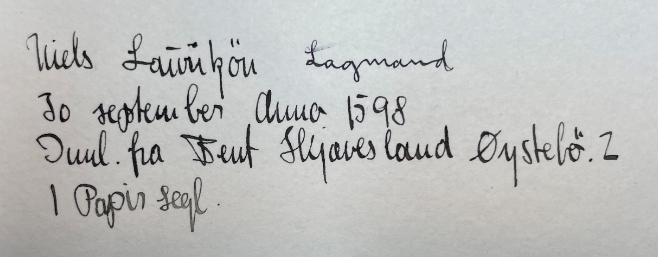 Niels Lauritzön Lagmand
30 september Anno 1598
Innl. fra Bent Skjævesland Øystebö. 2
1 Papir segl.